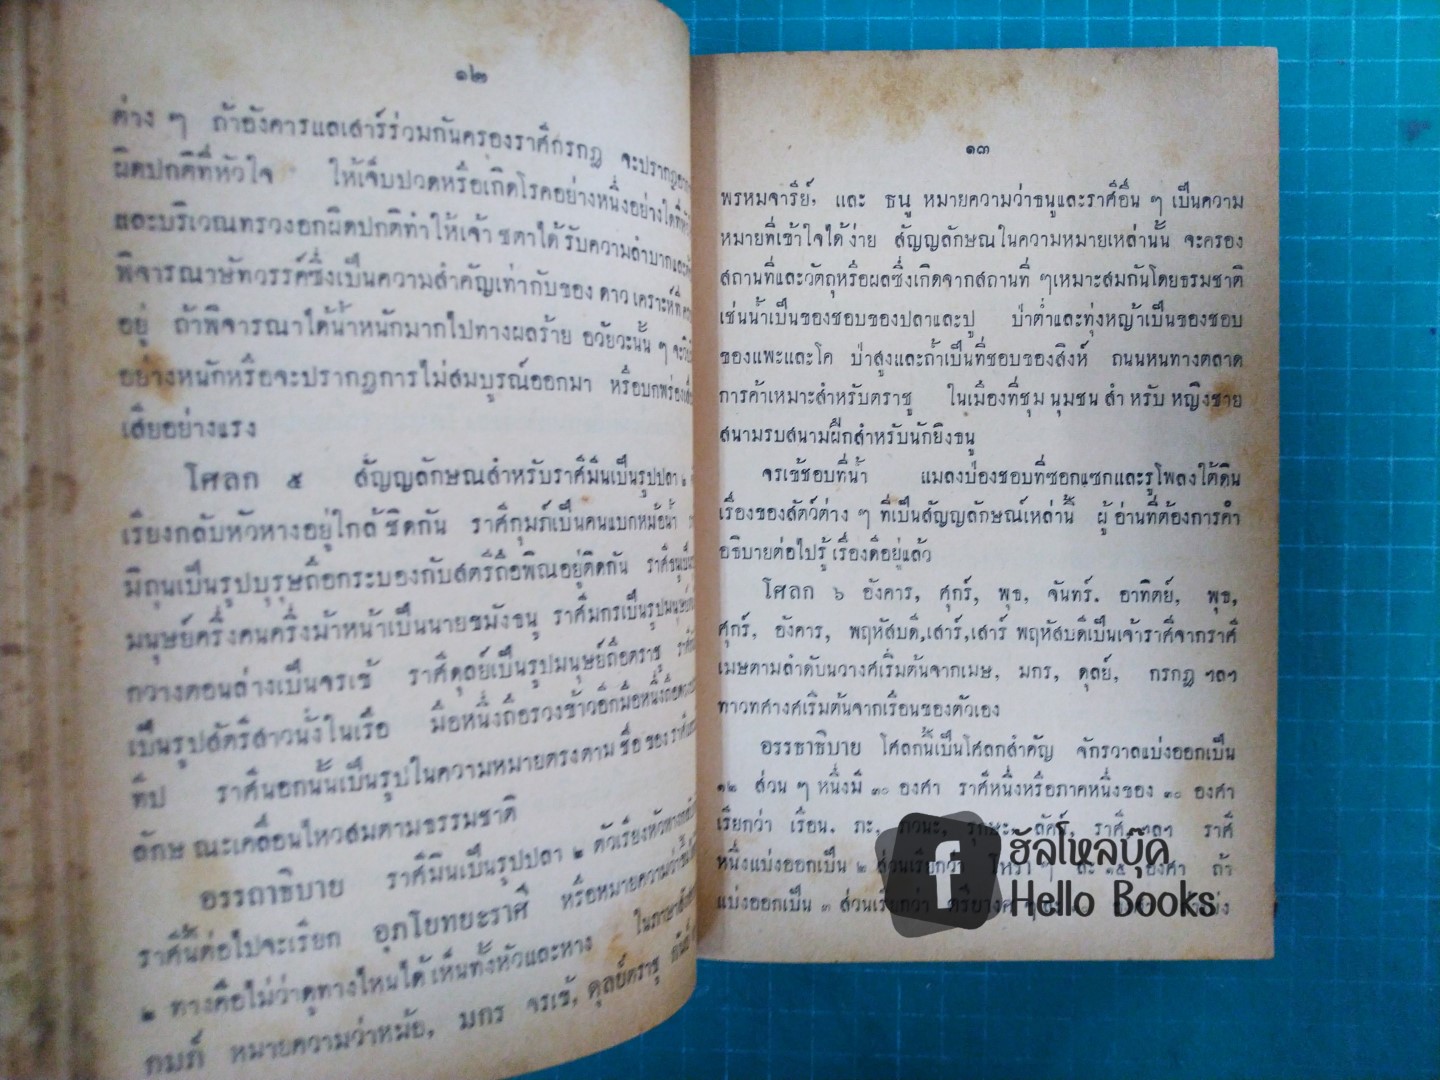 ๑๒
ต่าง ๆ ถ้าอังคารแลเสาร์ร่วมกันครองราศีกรกฎ จะปรากฏ
ผิดปกติที่หัวใจ ให้เจ็บปวดหรือเกิดโรคอย่างหนึ่งอย่างใดที่
และบริเวณทรวงอกผิดปกติทำให้เจ้า ชตาได้ รับความลำบากและ
พิจารณาษัทวรรค์ซึ่งเป็นความสำคัญเท่ากับของ ดาว เคราะห์ที่
อยู่ ถ้าพิจารณาได้น้ำหนักมากไปทางผลร้าย อวัยวะนั้น ๆ จะ
อย่างหนักหรือจะปรากฏการไม่สมบูรณ์ออกมา หรือบกพร่อง
เสียอย่างแรง
โศลก ๕ สัญญลักษณสำหรับราศีมีนเป็นรูปปลา ๒
เรียงกลับหัวหางอยู่ใกล้ ชิดกัน ราศีกุมภ์เป็นคนแบกหม้อน้ำ
มิถุนเป็นรูปบุรุษถือกระบองกับสตรีถือพิณอยู่ติดกัน ราศีธนูเป็น
มนุษย์ครึ่งคนครึ่งม้าหน้าเป็นนายขมังธนู ราศีมกรเป็นรูปมนุษย์
กวางตอนล่างเป็นจรเข้ ราศีดุลย์เป็นรูปมนุษย์ถือตราชู
เป็นรูปสัตรีสาวนั่งในเรือ มือหนึ่งถือรวงข้าวอีกมือหนึ่งถือ
ทีป ราศีนอกนั้นเป็นรูปในความหมายตรงตาม ชื่อ ของ ราศี
ลักษ ณะเคลื่อนไหวสมตามธรรมชาติ
อรรถาธิบาย ราศีมีนเป็นรูปปลา ๒ ตัวเรียงหัวหาง
ราศีนี้ต่อไปจะเรียก อุภโยทยะราศี หรือหมายความว่าขึ้น
๒ ทางคือไม่ว่าดูทางไหนได้ เห็นทั้งหัวและหาง ในภาษา
กุมภ์ หมายความว่าหม้อ, มกร จรเข้, ดุลย์ตราชู กันย์
๑๓
พรหมจารีย์, และ ธนู หมายความว่าธนูและราศีอื่น ๆ เป็นความ
หมายที่เข้าใจได้ ง่าย สัญญลักษณในความหมายเหล่านั้น จะครอง
สถานที่และวัตถุหรือผลซึ่งเกิดจากสถานที่ ๆเหมาะสมกันโดยธรรมชาติ
เช่นน้ำเป็นของชอบของปลาและปู ป่าต่ำและทุ่งหญ้าเป็นของชอบ
ของแพะและโค ป่าสูงและถ้ำเป็นที่ชอบของสิงห์ ถนนหนทางตลาด
การค้าเหมาะสำหรับตราชู ในเมืองที่ชุม นุมชน สำ หรับ หญิงชาย
สนามรบสนามฝึกสำหรับนักยิงธนู
จรเข้ชอบที่น้ำ แมลงป่องชอบที่ซอกแซกและรูโพลงใต้ดิน
เรื่องของสัตว์ต่าง ๆ ที่เป็นสัญญลักษณ์เหล่านี้ ผู้ อ่านที่ต้องการคำ
อธิบายต่อไปรู้ เรื่องดีอยู่แล้ว
โศลก ๖ อังคาร, ศุกร์, พุธ, จันทร์. อาทิตย์, พุธ,
ศุกร์, อังคาร, พฤหัสบดี,เสาร์,เสาร์ พฤหัสบดีเป็นเจ้าราศีจากราศี
เมษตามลำดับนวางศ์เริ่มต้นจากเมษ, มกร, ดุลย์, กรกฎ ฯลฯ
ทาวทศางศ์เริ่มต้นจากเรือนของตัวเอง
อรรธาธิบาย โศลกนี้เป็นโศลกสำคัญ จักรวาลแบ่งออกเป็น
๑๒ ส่วน ๆ หนึ่งมี ๓๐ องศา ราศีหนึ่งหรือภาคหนึ่งของ ๓๐ องศา
เรียกว่า เรือน. ภะ, ภวนะ, ราศี ฯลฯ ราศี
หนึ่งแบ่งออกเป็น ๒ ส่วนเรียกว่า โหรา ๆ ละ ๑๕ องศา ถ้า
แบ่งออกเป็น ๓ ส่วนเรียกว่า
f ฮัลโหลบุ๊ค
Hello Books